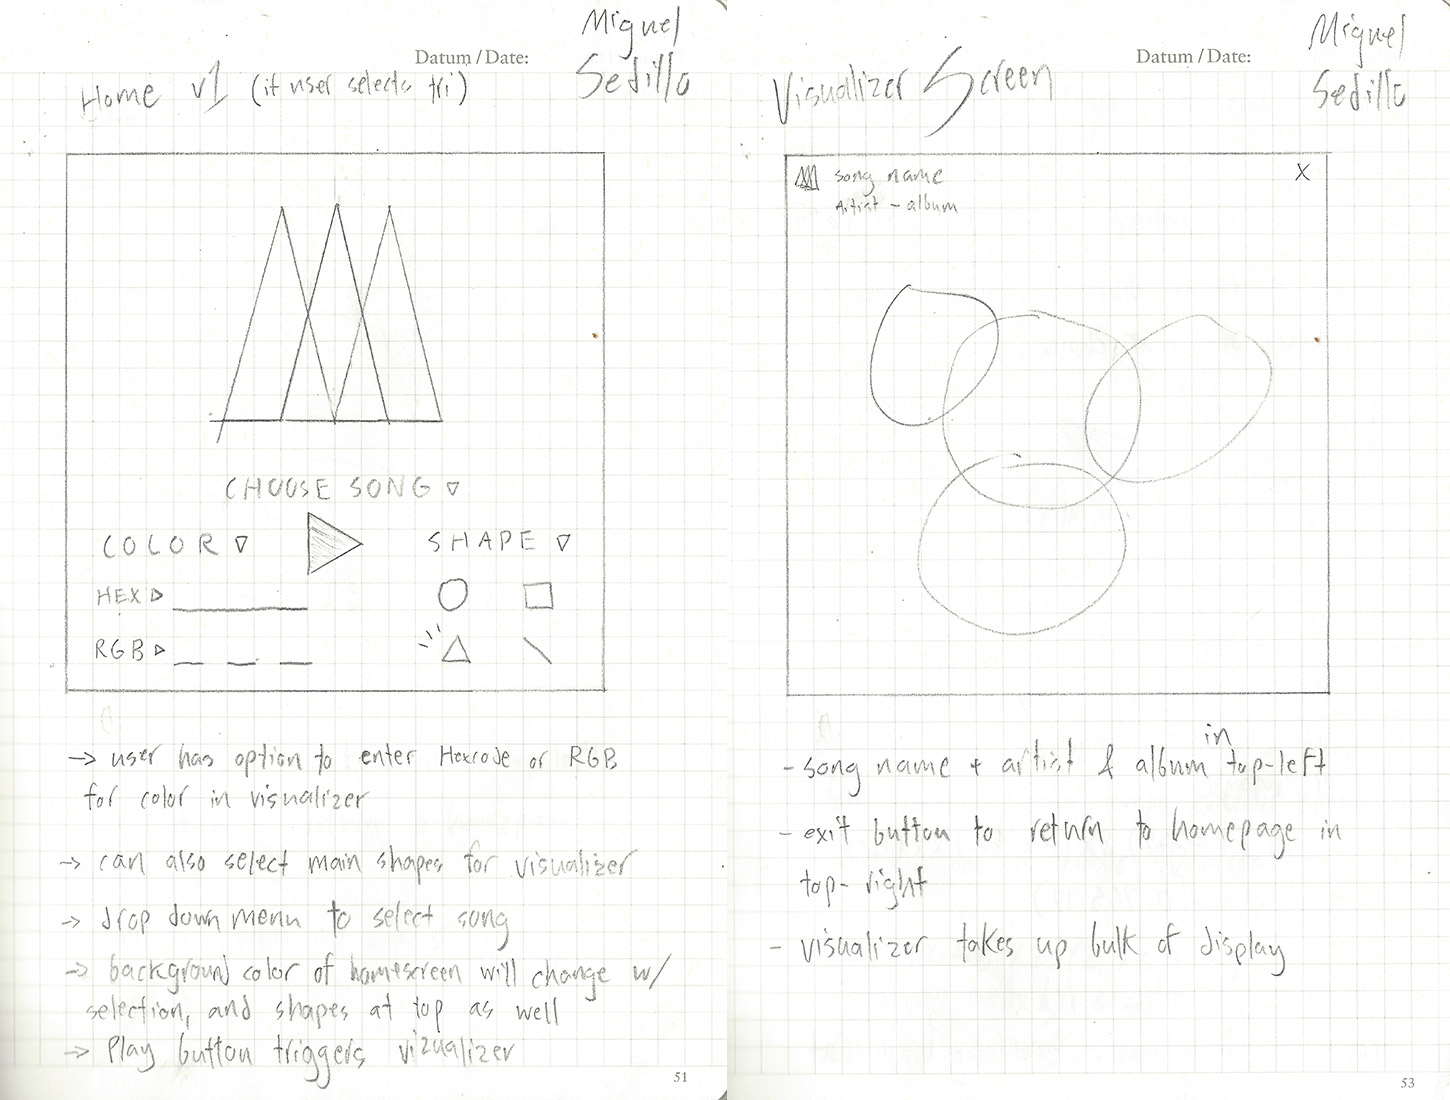 Datum / Date:
Miguel
Sedillo
Home v1 (if user selects tri)
CHOOSE SONG
COLOR
SHAPE
HEX
RGB
→ user has option to enter Hexcode or RGB
for color in visualizer
→ can also select main shapes for visualizer
→ drop down menu to select song
→ background color of homescreen will change w/
selection, and shapes at top as well
→ Play button triggers vizualizer
51
Datum / Date:
Miguel
Sedillo
Visualizer Screen
song name
Artist - album
X
- song name + artist & album in top-left
- exit button to return to homepage in
top-right
- visualizer takes up bulk of display
53